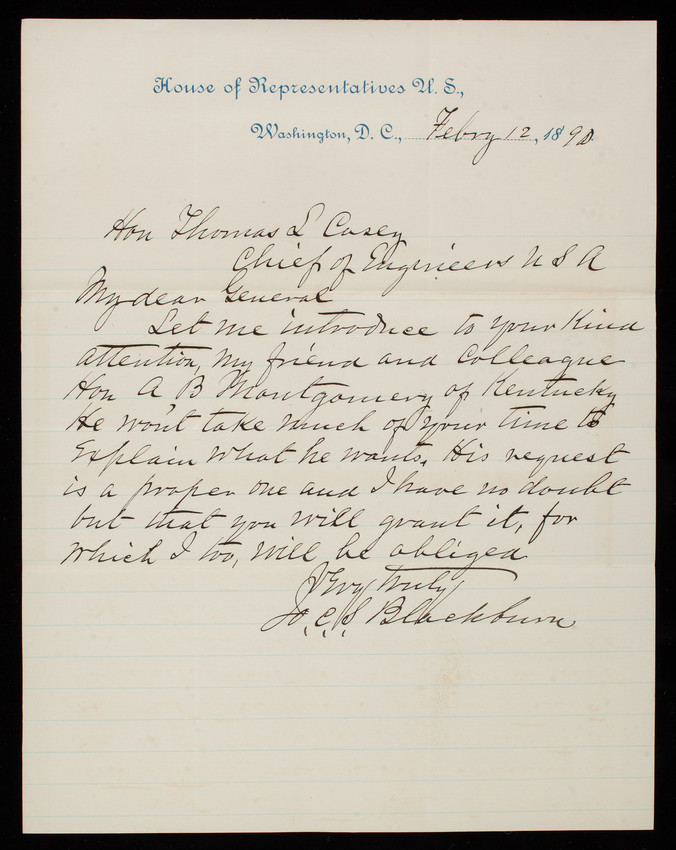 House of Representatives U. S.,
Washington, D. C., Febry 12, 1890
Hon Thomas L Casey
Chief of Engineers U S A
My dear General
Let me introduce to your Kind
attention, my friend and Colleague
Hon A, B Montgomery of Kentucky
He won't take much of your time to
Explain what he wants. His request
is a proper one and I have no doubt
but that you will grant it, for
which I too, will be obliged
Very truly
Jo, C, S, Blackburn